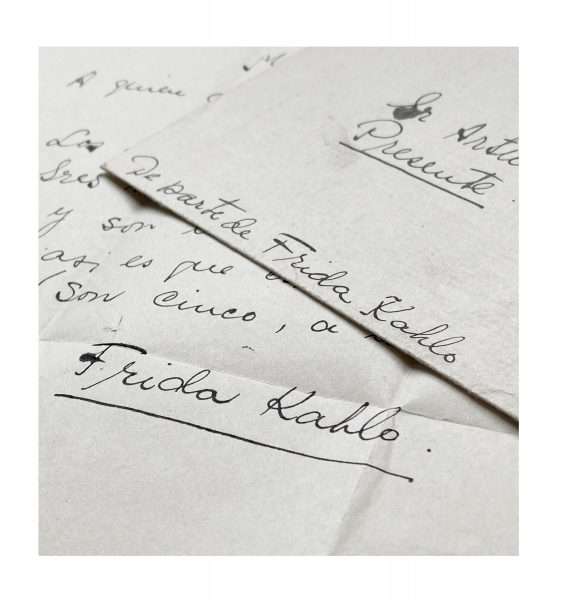 A quien
Los
Sres
y son
asi es que
(son cinco, a
Frida Kahlo.
Sr Artu
Presente.
De parte de Frida Kahlo